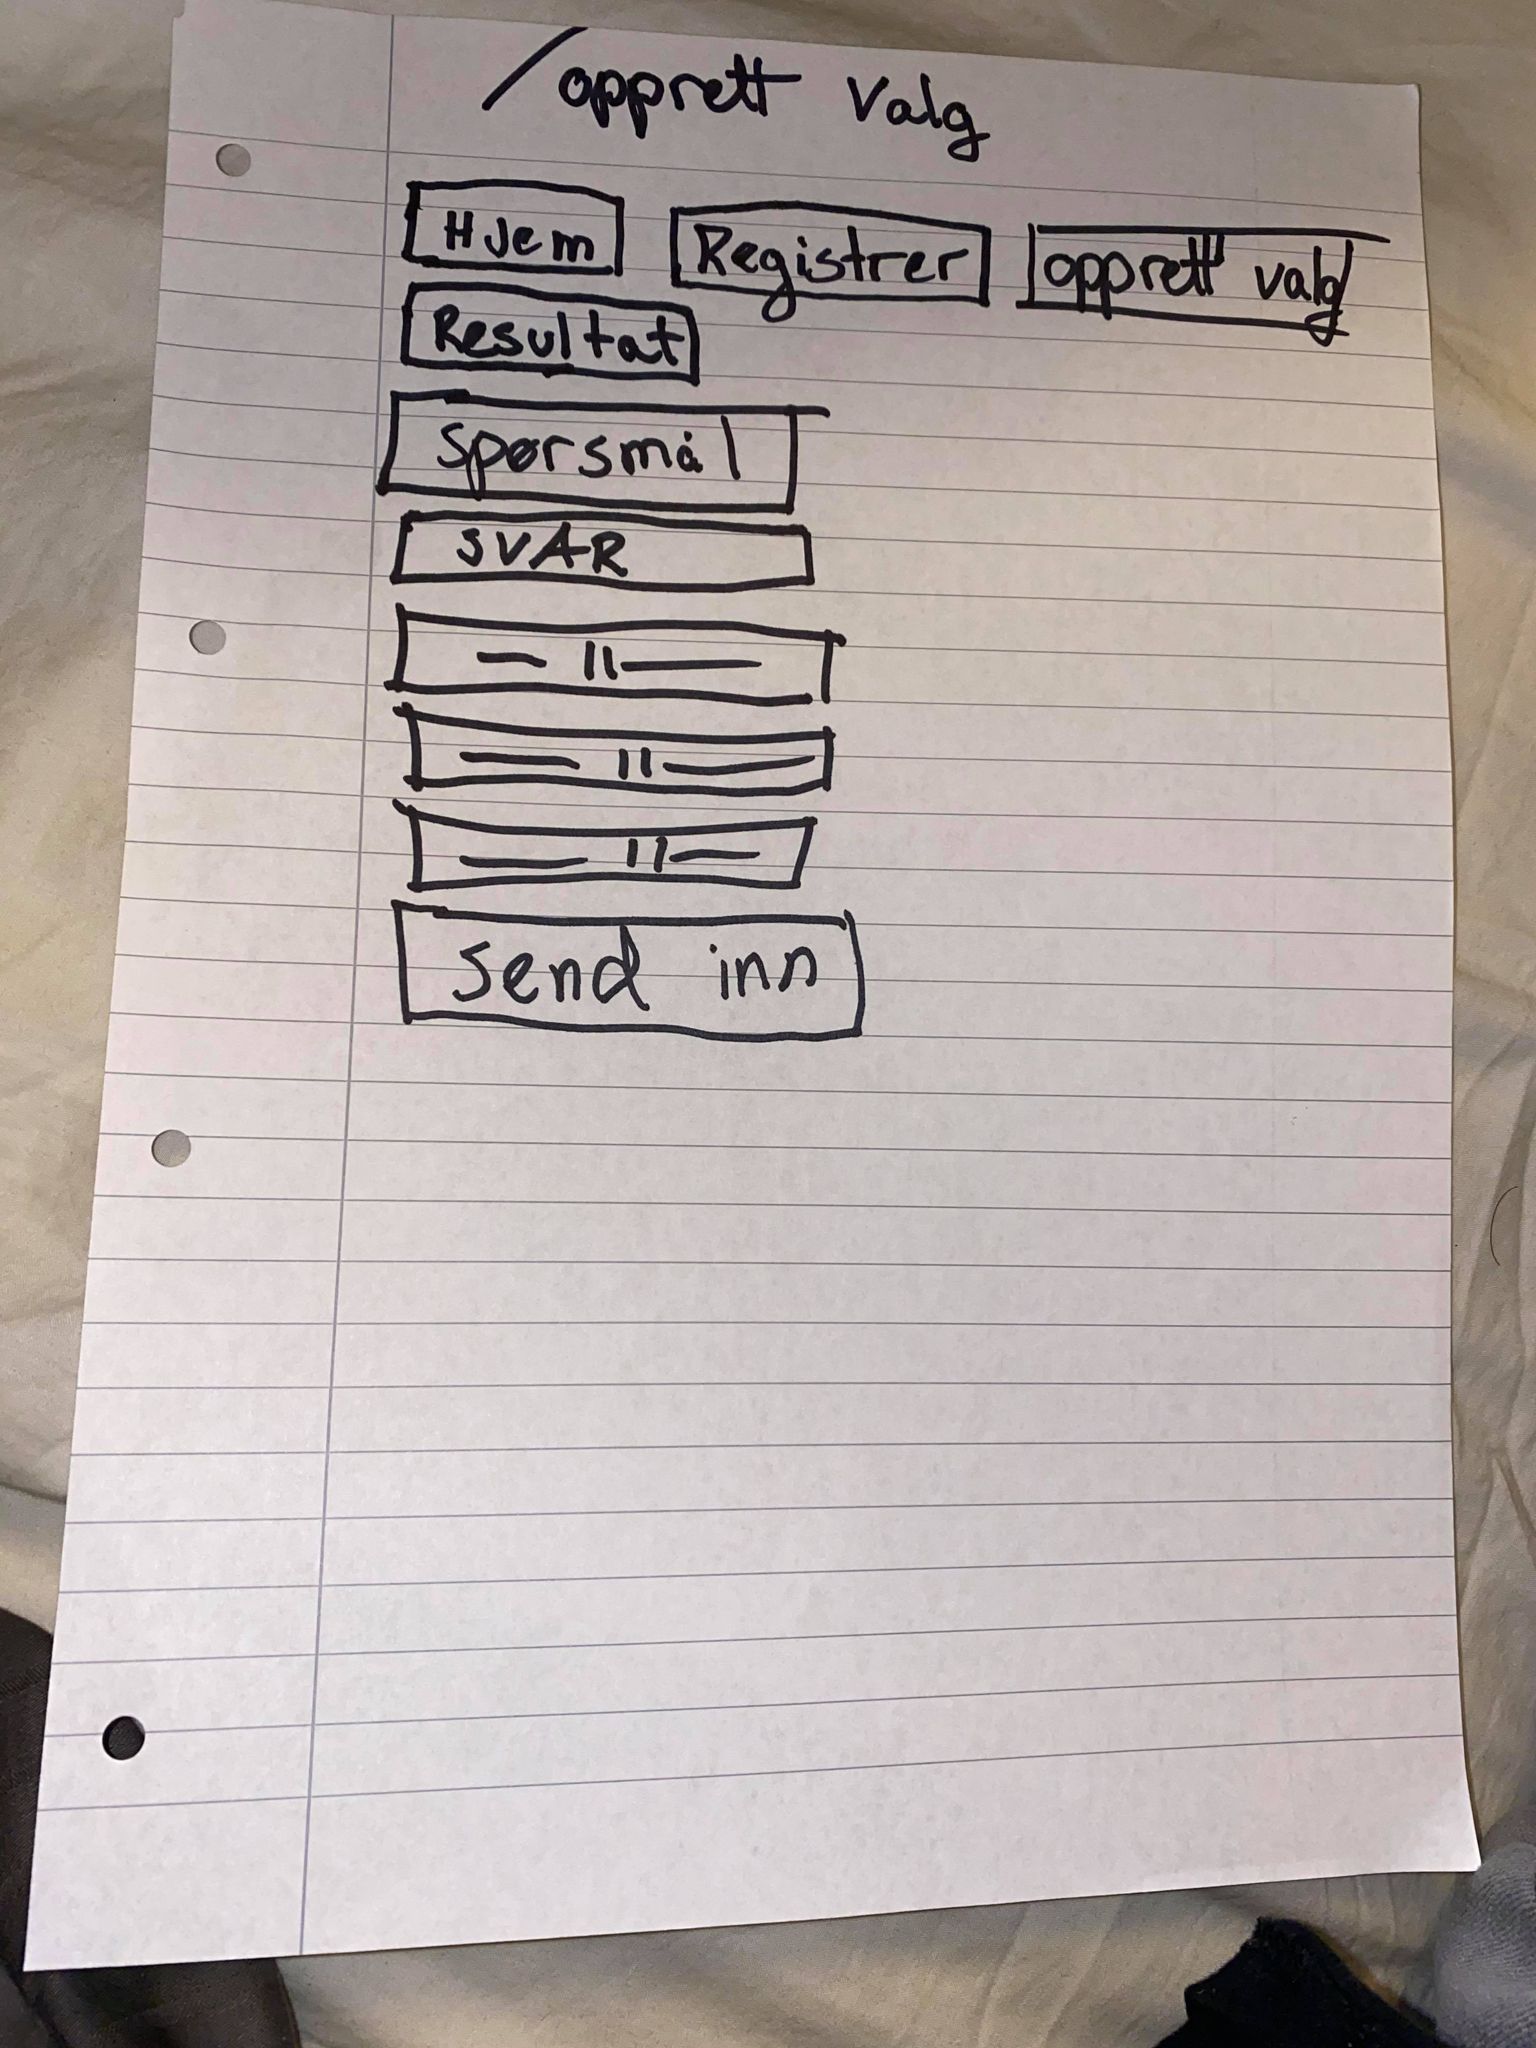 /opprett valg
Hjem Registrer opprett valg
Resultat
spørsmål
SVAR
— || —
— || —
— || —
Send inn